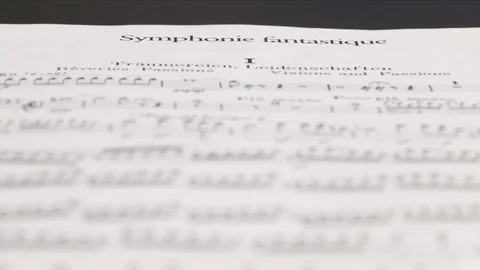 Symphonie fantastique
I
Träumereien, Leidenschaften
Rêveries – Passions Visions and Passions